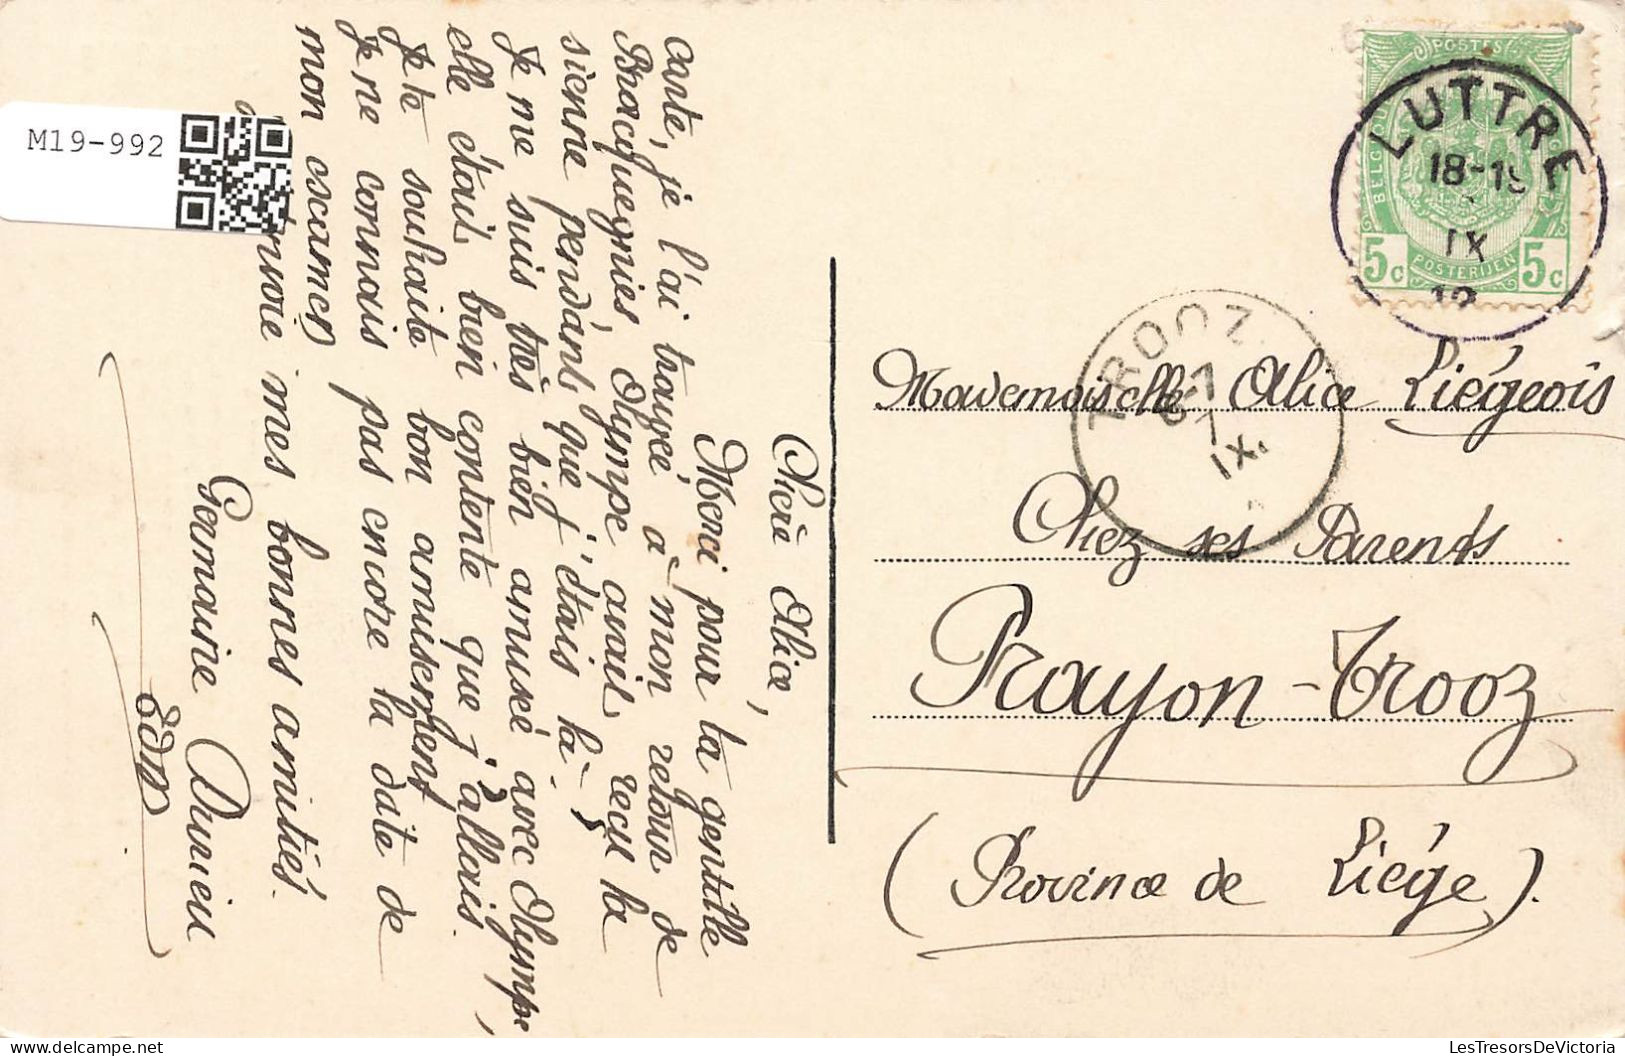 M19-992
Chère Alice,
Merci pour la gentille
carte, je l'ai trouvée à mon retour de
Bracquegnies, Olympe avait reçu la
sienne pendant que j'étais là.
Je me suis très bien amusée avec Olympe,
elle était bien contente que j'allais.
Je te souhaite bon amusement
Je ne connais pas encore la date de
mon examen
mes bonnes amitiés.
Germaine
POSTES
BELGIQUE
5c
POSTERIJEN
5c
LUTTRE
18-19
IX
TROOZ
6-7
7
IX
Mademoiselle Alice Liégeois
Chez ses Parents
Prayon-Trooz
(Province de Liège).
LesTresorsDeVictoria